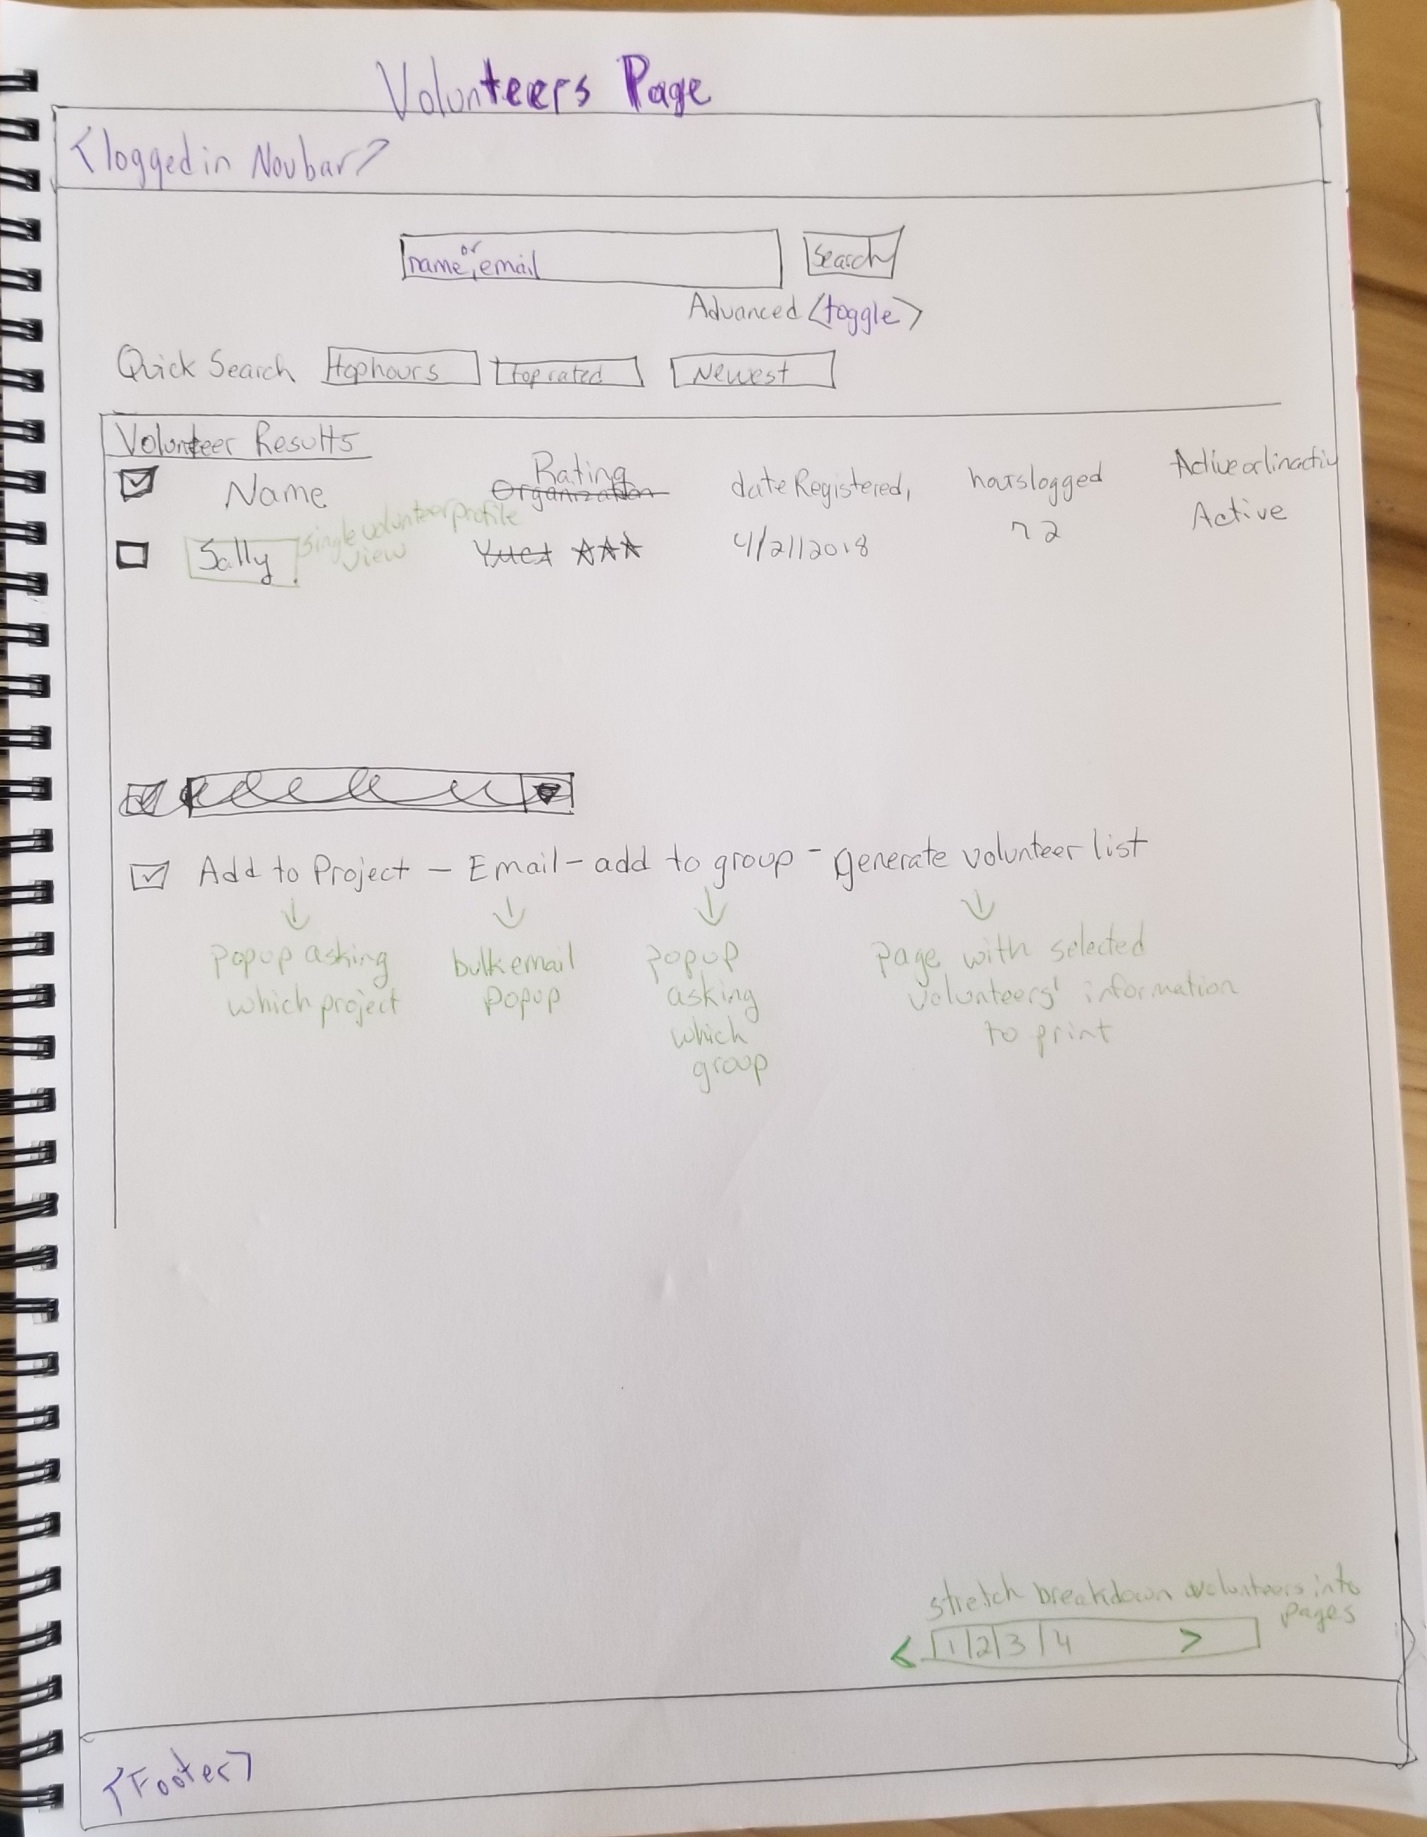 Volunteers Page
<logged in Nav bar>
name or email
Search
Advanced <toggle>
Quick Search top hours top rated Newest
Volunteer Results
Name Rating Organization date Registered, hours logged Active or Inactiv
Sally single volunteer profile view ☆☆☆ 4/21/2018 72 Active
Add to Project - Email - add to group - generate volunteer list
↓ ↓ ↓ ↓
popup asking bulk email popup page with selected
which project popup asking volunteers' information
which to print
group
stretch breakdown volunteers into
pages
< 1|2|3|4 >
<Footer>